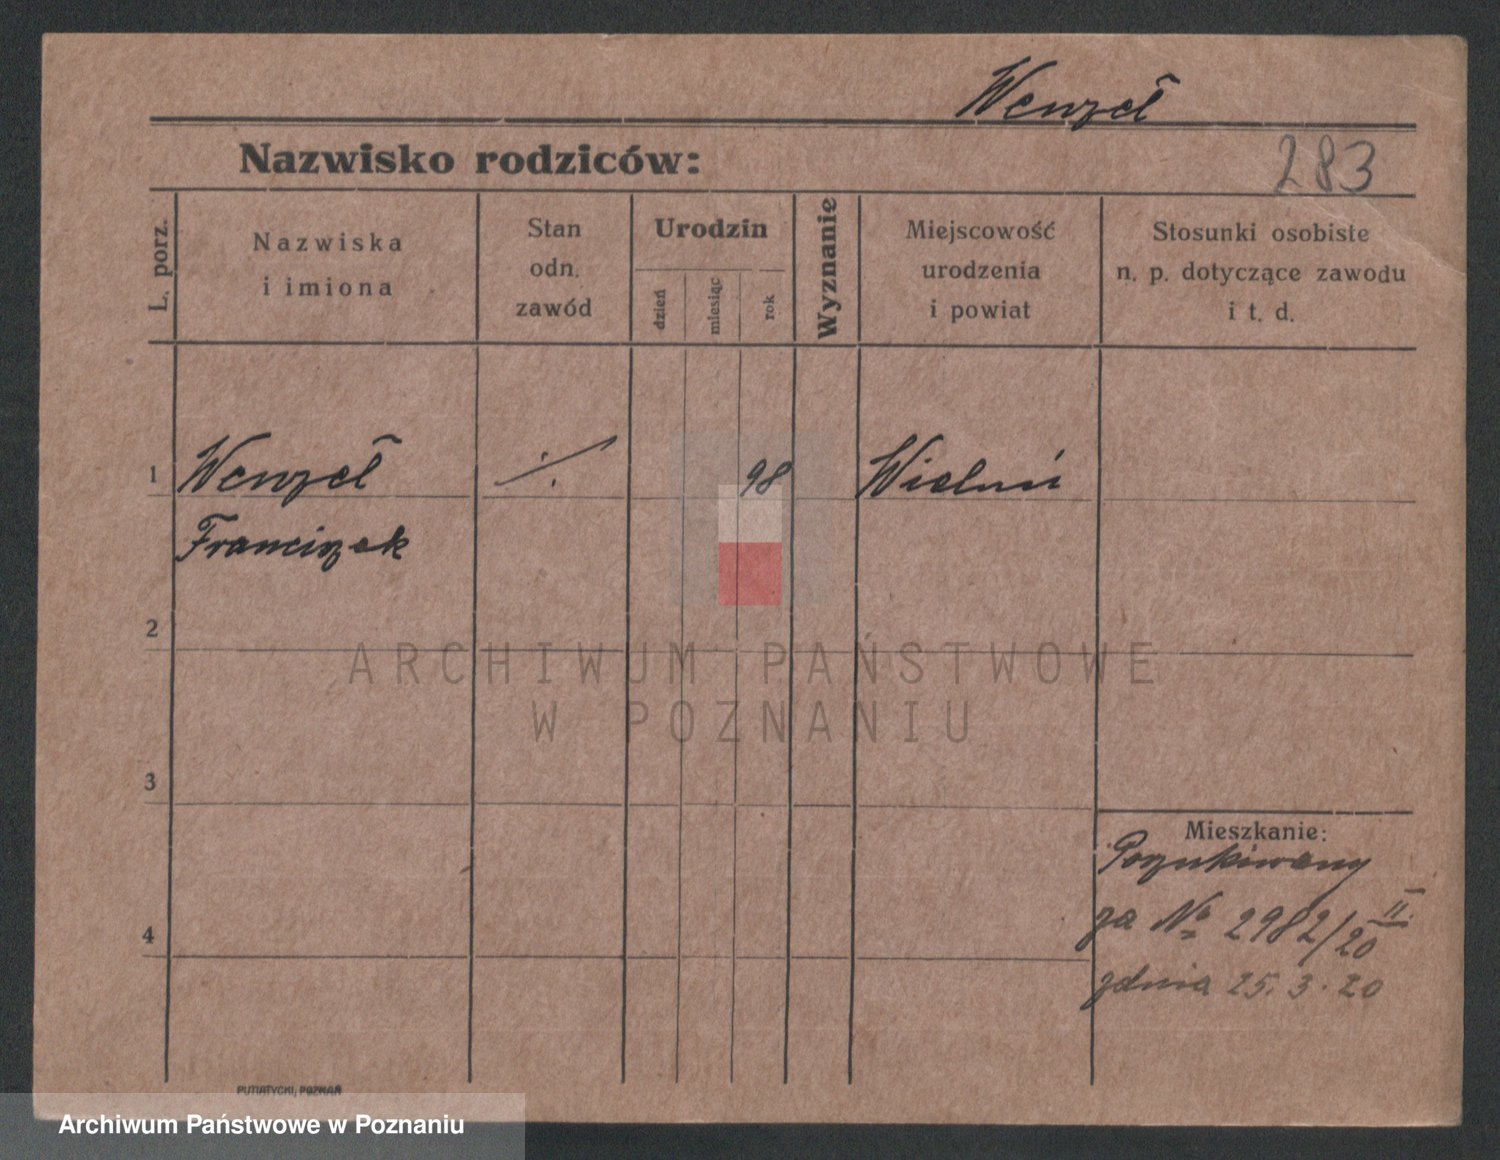 Wenzel
Nazwisko rodziców:
283
L. porz.
Nazwiska
i imiona
Stan
odn.
zawód
Urodzin
dzień
miesiąc
rok
Wyznanie
Miejscowość
urodzenia
i powiat
Stosunki osobiste
n. p. dotyczące zawodu
i t. d.
1
Wenzel
·/.
98
Wieluń
Franciszek
2
ARCHIWUM PAŃSTWOWE
W POZNANIU
3
Mieszkanie:
Poszukiwany
za No 2982/20 II.
4
zdnia 25. 3. 20
PUTIATYCKI, POZNAŃ
Archiwum Państwowe w Poznaniu